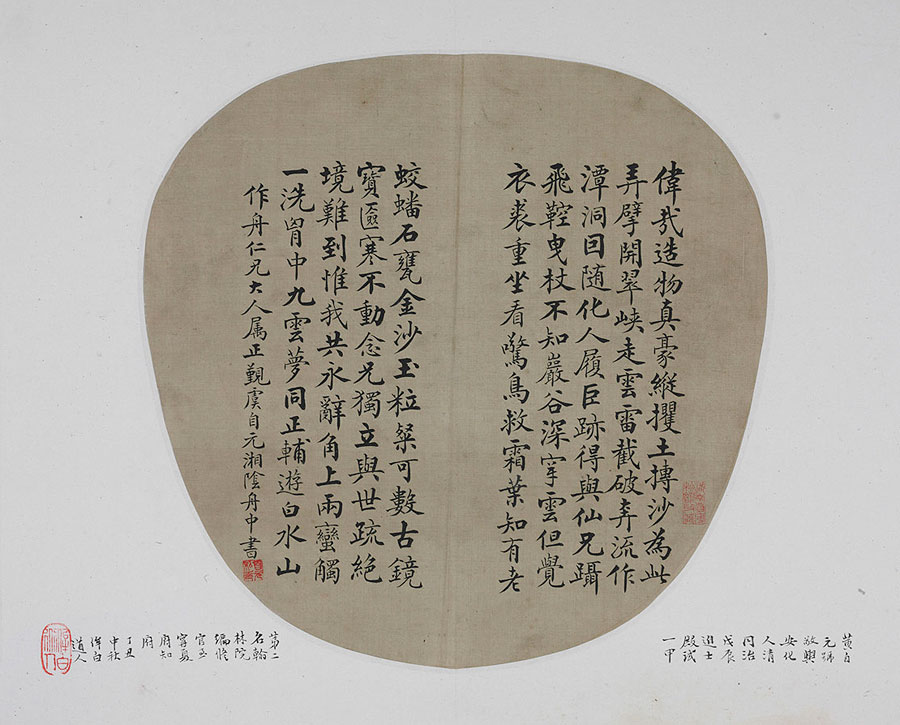 偉哉造物真豪縱攫土摶沙為此
弄擘開翠峽走雲雷截破奔流作
潭洞回随化人履巨跡得與仙兄躡
飛鞚曳杖不知巖谷深穿雲但覺
衣裘重坐看驚鳥救霜葉知有老
蛟蟠石甕金沙玉粒粲可數古鏡
寶匳寒不動念兄獨立與世疏絕
境難到惟我共永辭角上兩蠻觸
一洗胷中九雲夢同正輔遊白水山
作舟仁兄大人属正覲虞自元湘陰舟中書
黃自
元號
敬輿
安化
人清
同治
戊辰
進士
殿試
一甲
第二
名翰
林院
編修
官至
寧夏
府知
府
丁丑
中秋
倬白
道人